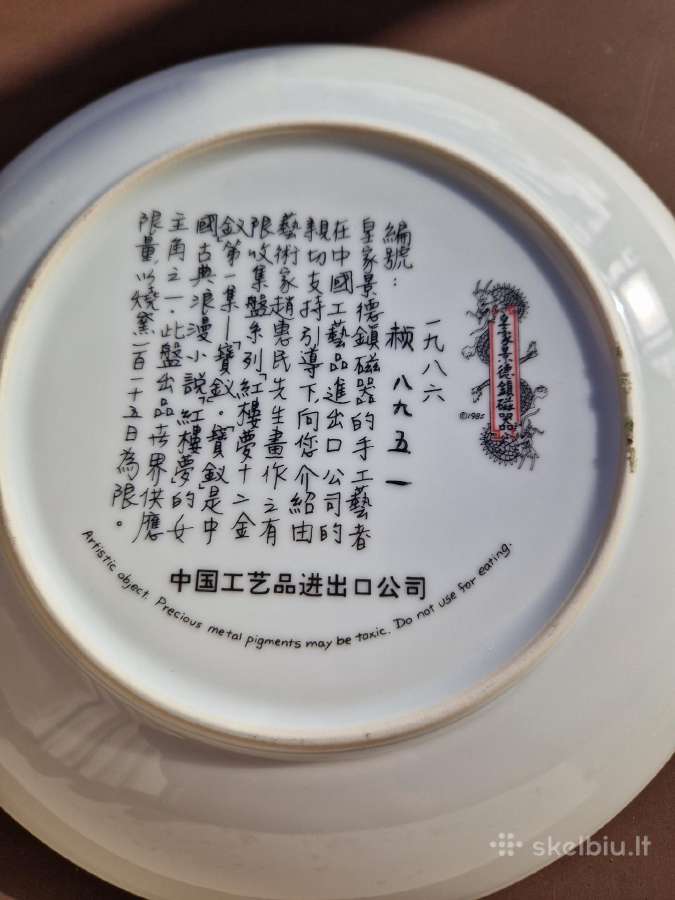 皇家景德鎮磁器
©1985
一九八六
編號：
八九五一
皇家景德鎮磁器的手工藝者
在中國工藝品進出口公司的
親切支持引導下,向您介紹由
藝術家趙惠民先生畫作之有
限收集盤系列「紅樓夢十二金
釵」第一集—「寶釵」。「寶釵」是中
國古典浪漫小說「紅樓夢」的女
主角之一.此盤出品世界供應
限量,以燒窯一百一十五日為限。
中国工艺品进出口公司
Artistic object. Precious metal pigments may be toxic. Do not use for eating.
skelbiu.lt